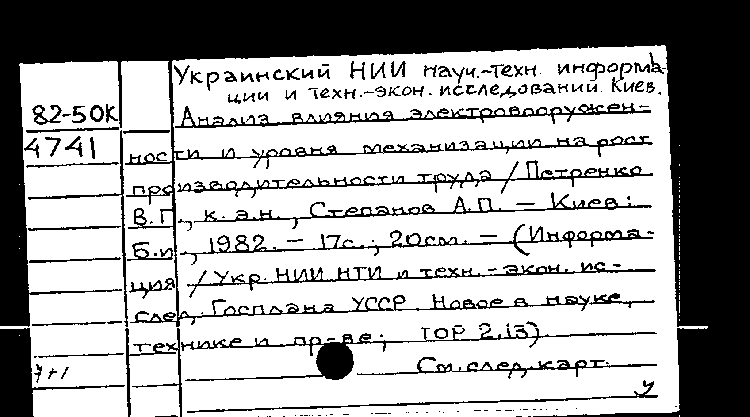 Украинский НИИ науч.-техн. информа-
ции и техн.-экон. исследований. Киев.
82-50К Анализ влияния электровооружен-
4741 ности и уровня механизации на рост
производительности труда / Петренко
В.П., к.э.н., Степанов А.П. — Киев:
Б.и., 1982. — 17с.; 20см. — (Информа-
ция / Укр. НИИ НТИ и техн.-экон. ис-
след. Госплана УССР. Новое в науке,
технике и пр-ве; ТОР 2.13)
7+1 См. след. карт.